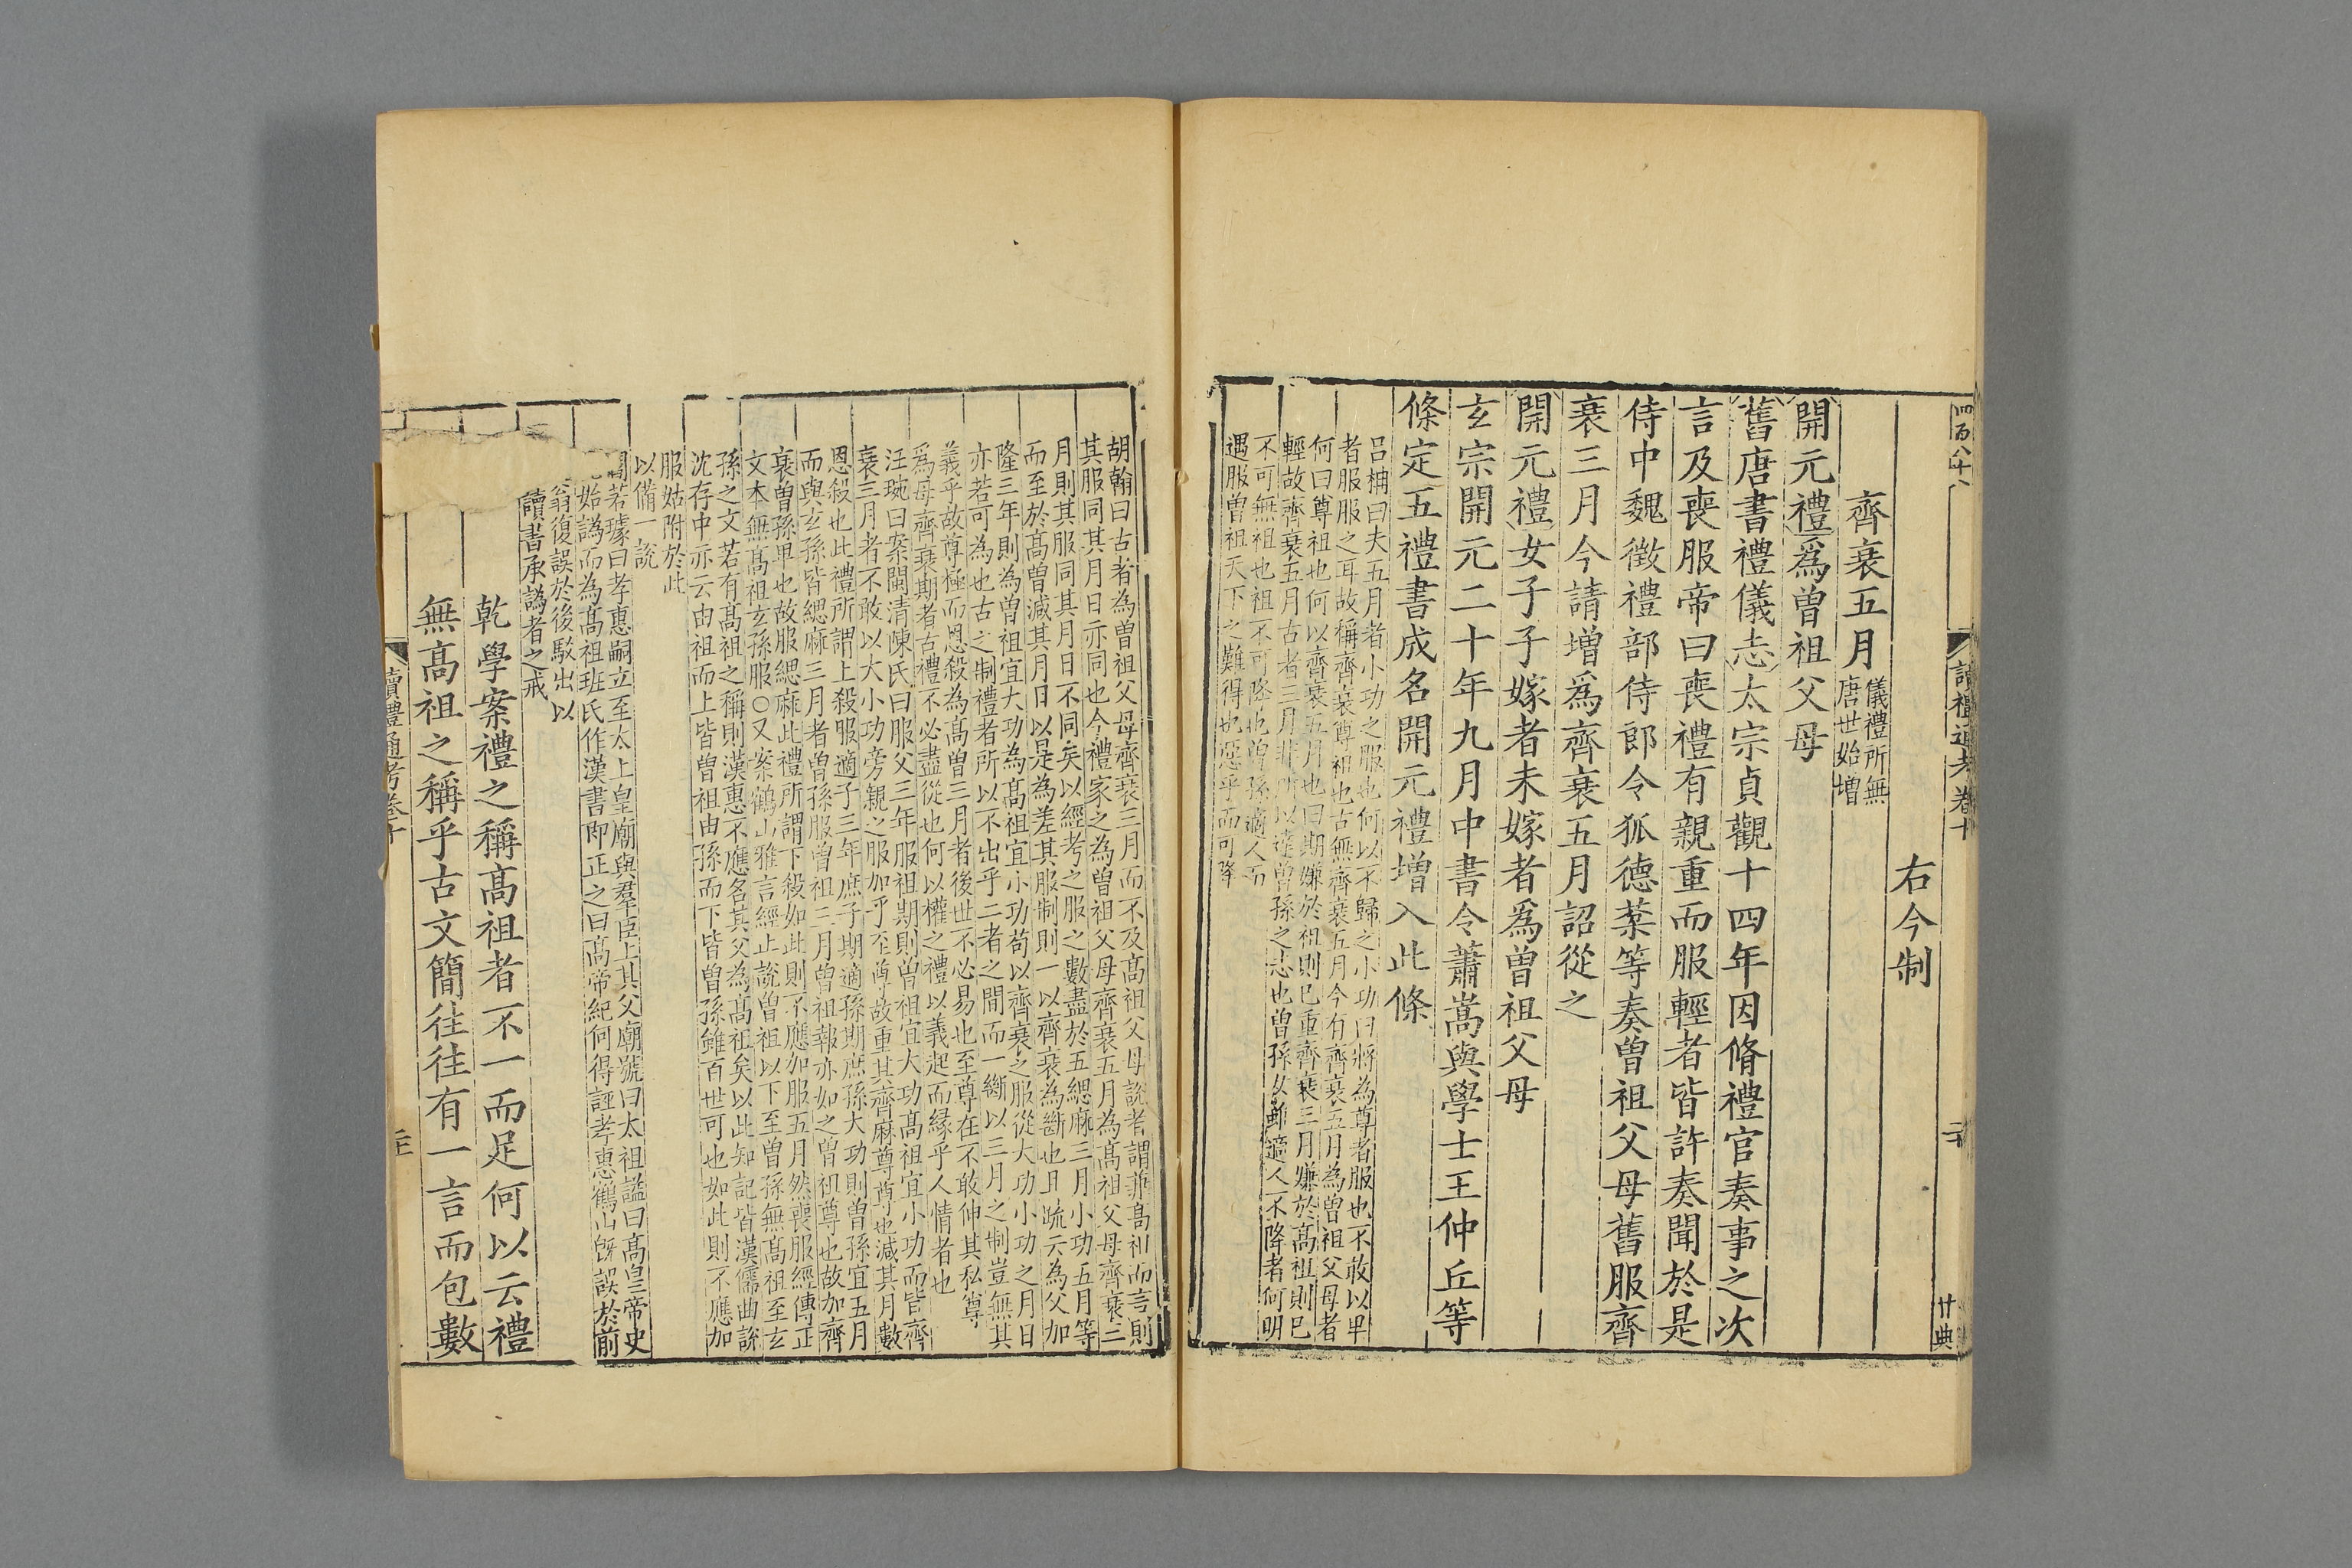 四百八十八
讀禮通考卷十
廿典
右今制
齊衰五月
儀禮所無
唐世始增
開元禮爲曾祖父母
舊唐書禮儀志太宗貞觀十四年因脩禮官奏事之次
言及喪服帝曰喪禮有親重而服輕者皆許奏聞於是
侍中魏徵禮部侍郎令狐德棻等奏曾祖父母舊服齊
衰三月今請增爲齊衰五月詔從之
開元禮女子子嫁者未嫁者爲曾祖父母
玄宗開元二十年九月中書令蕭嵩與學士王仲丘等
條定五禮書成名開元禮增入此條
吕柟曰夫五月者小功之服也何以不歸之小功曰將為尊者服也不敢以卑
者服服之耳故稱齊衰尊祖也古無齊衰五月今有齊衰五月為曾祖父母者
何曰尊祖也何以齊衰五月也曰期嫌於祖則已重齊衰三月嫌於高祖則已
輕故齊衰五月古者三月非所以達曾孫之志也曾孫女雖適人不降者何明
不可無祖也祖不可降也曾孫適人而
遇服曾祖天下之難得也惡乎而可降
胡翰曰古者為曾祖父母齊衰三月而不及高祖父母説者謂兼高祖而言則
其服同其月日亦同也今禮家之為曾祖父母齊衰五月為高祖父母齊衰三
月則其服同其月日不同矣以經考之服之數盡於五緦麻三月小功五月等
而至於高曾減其月日以是為差其服制則一以齊衰為斷也且疏云為父加
隆三年則為曾祖宜大功為高祖宜小功苟以齊衰之服從大功小功之月日
亦若可為也古之制禮者所以不出乎二者之間而一斷以三月之制豈無其
義乎故尊極而恩殺為高曾三月者後世不必易也至尊在不敢伸其私尊
爲母齊衰期者古禮不必盡從也何以權之禮以義起而緣乎人情者也
汪琬曰案閩清陳氏曰服父三年服祖期則曾祖宜大功高祖宜小功而皆齊
衰三月者不敢以大小功旁親之服加乎至尊故重其齊麻尊尊也減其月數
恩殺也此禮所謂上殺服適子三年庶子期適孫期庶孫大功則曾孫宜五月
而與玄孫皆緦麻三月者曾孫服曾祖三月曾祖報亦如之曾祖尊也故加齊
衰曾孫卑也故服緦麻此禮所謂下殺如此則不應加服五月然喪服經傳正
文本無高祖玄孫服○又案鶴山雅言經止説曾祖以下至曾孫無高祖至玄
孫之文若有高祖之稱則漢惠不應名其父為高祖矣以此知記皆漢儒曲説
沈存中亦云由祖而上皆曾祖由孫而下皆曾孫雖百世可也如此則不應加
服姑附於此
以備一説
閻若璩曰孝惠嗣立至太上皇廟與羣臣上其父廟號曰太祖諡曰高皇帝史
始譌而為高祖班氏作漢書即正之曰高帝紀何得誣孝惠鶴山旣誤於前
翁復誤於後駁出以
讀書承譌者之戒
乾學案禮之稱高祖者不一而足何以云禮
無高祖之稱乎古文簡往往有一言而包數
讀禮通考卷十